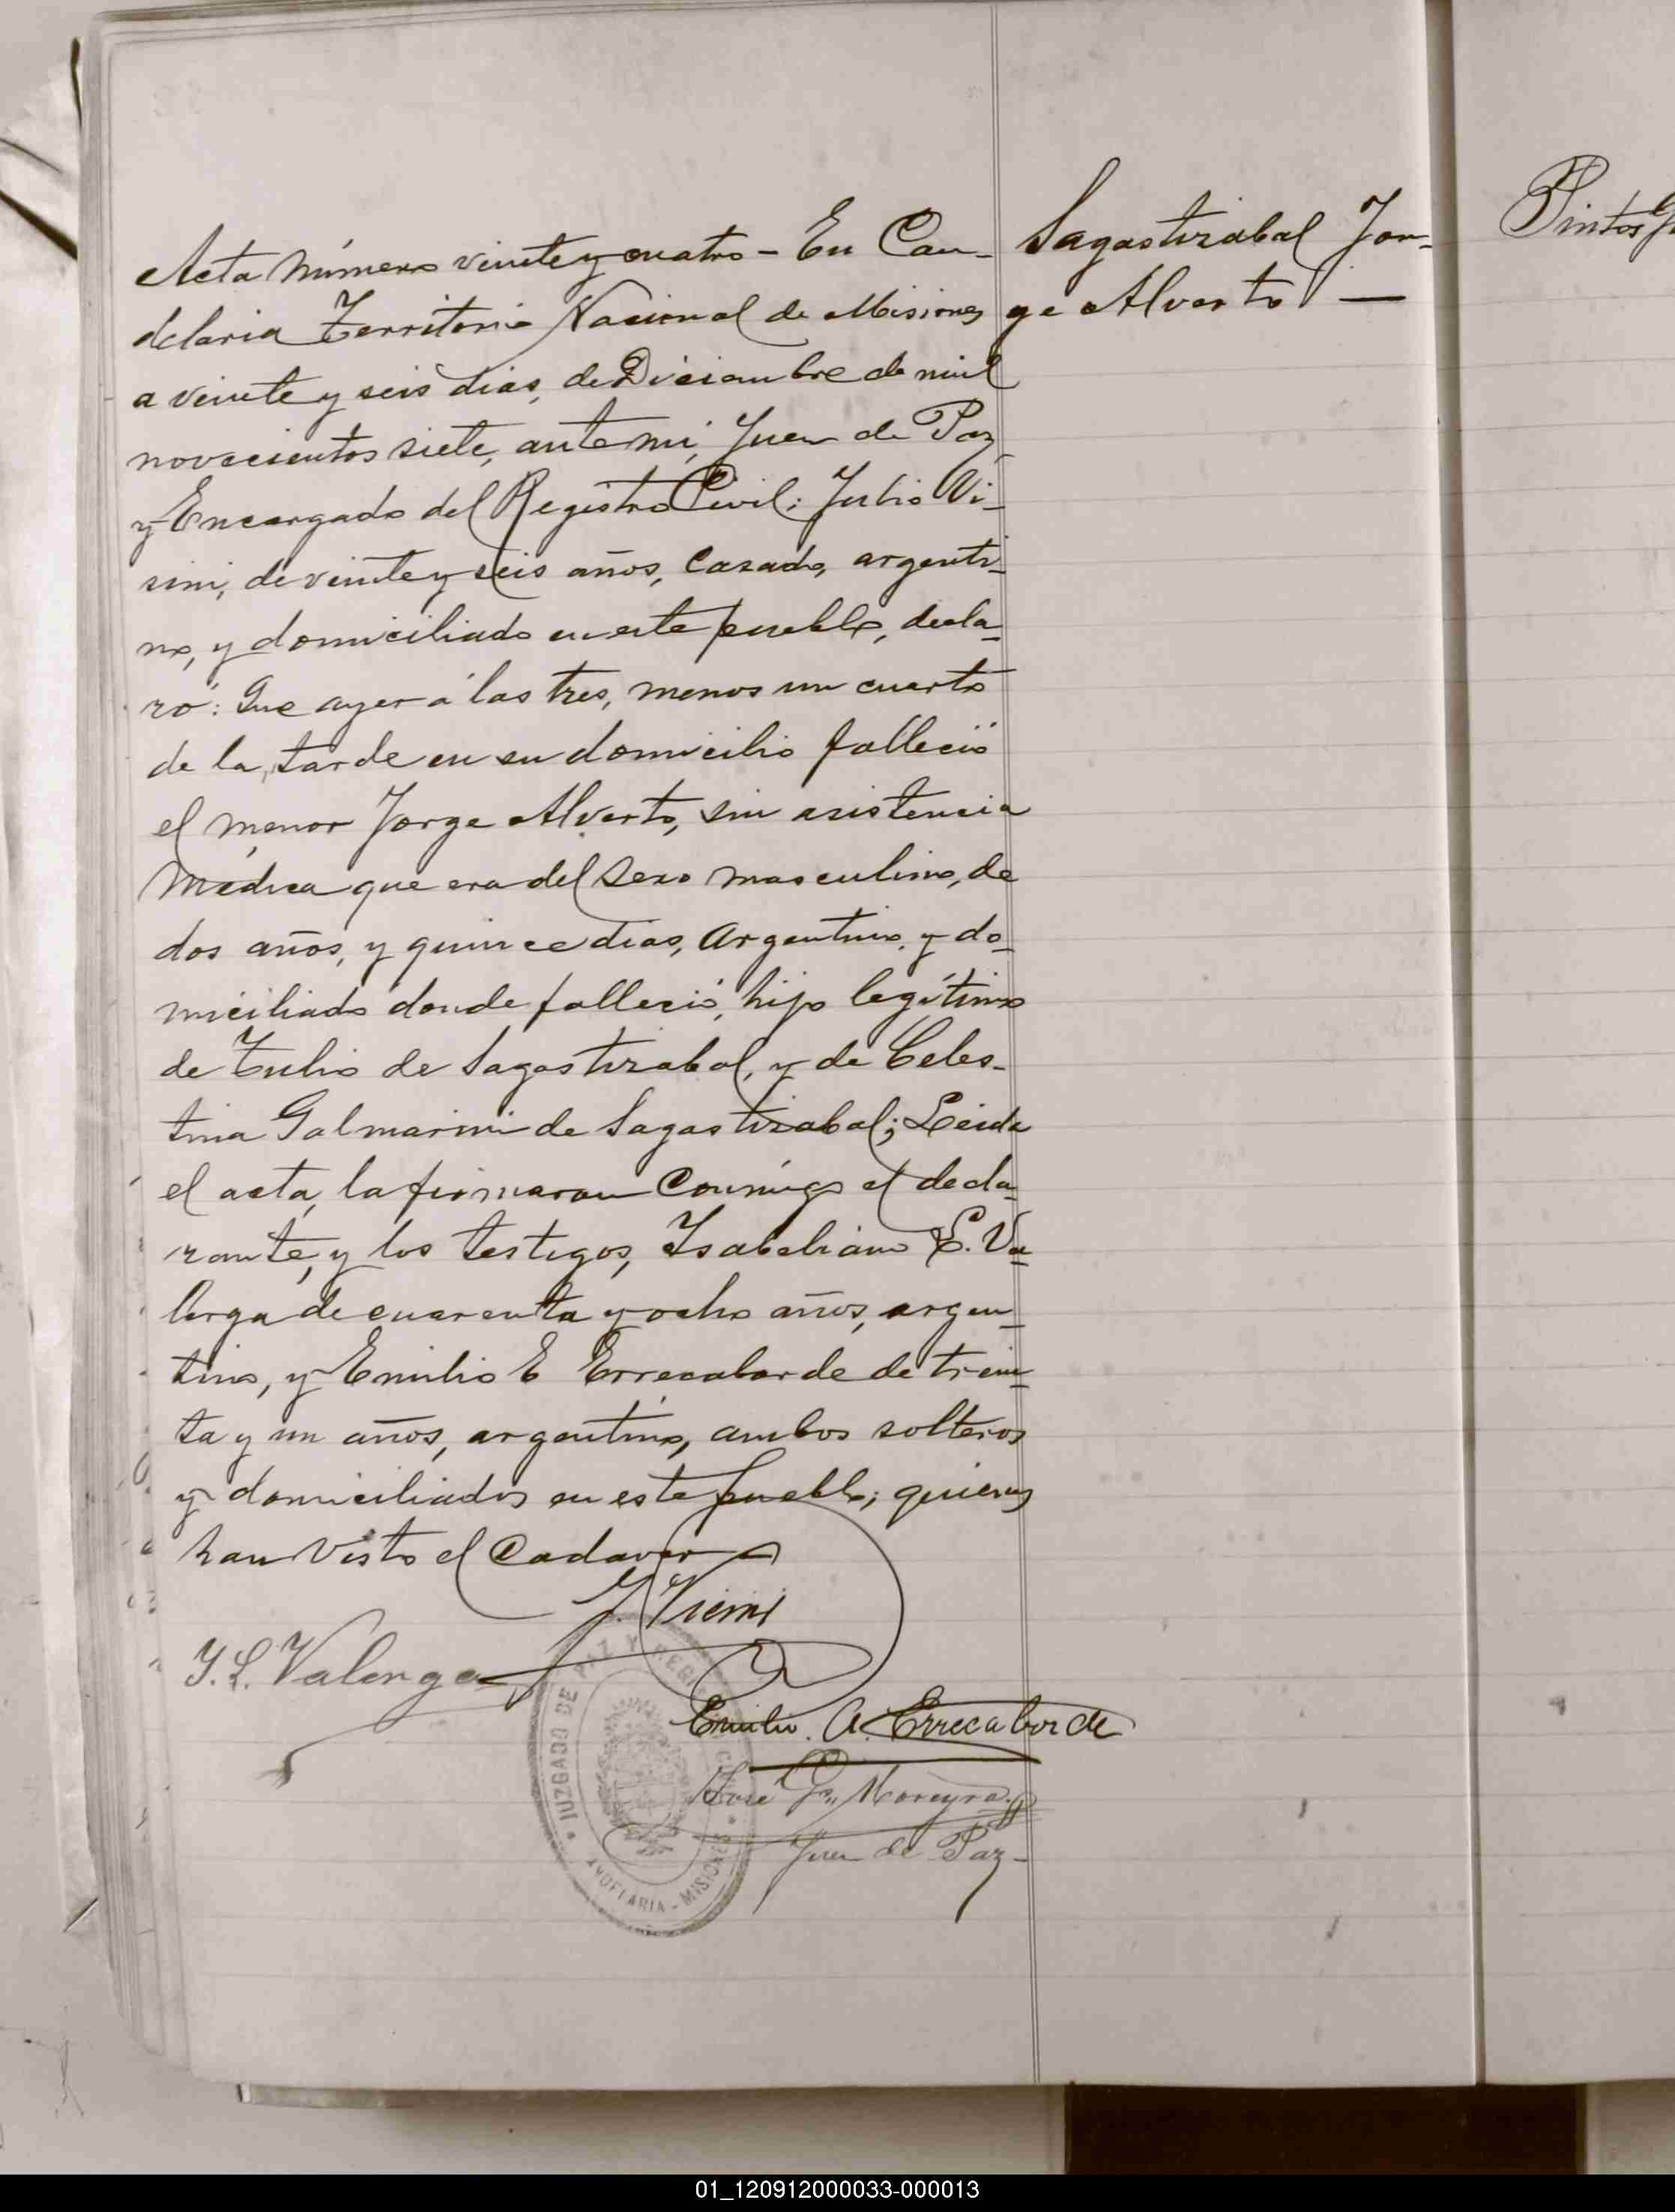 Acta número veinte y cuatro - En Can-
delaria Territorio Nacional de Misiones
a veinte y seis dias, de Diciembre de mil
novecientos siete, ante mi, Juez de Paz,
y Encargado del Registro Civil; Julio Vi-
sini, de veinte y seis años, Casado, argenti-
no, y domiciliado en este pueblo, decla-
ró: Que ayer á las tres, menos un cuarto
de la, tarde en su domicilio falleció
el menor Jorge Alverto, sin asistencia
Médica que era del Sexo masculino, de
dos años, y quince dias, Argentino, y do-
miciliado donde falleció, hijo legítimo
de Tulio de Sagastizabal, y de Celes-
tina Galmarini de Sagastizabal; Leida
el acta, la firmaron Conmigo el decla-
rante, y los testigos, Isabeliano L. Va-
lerga de cuarenta y ocho años, argen-
tino, y Emilio E Errecaborde de trein-
ta y un años, argentino, ambos solteros
y domiciliados en este pueblo; quienes
han Visto el Cadaver
J. Visini
I. L. Valerga
Emilio. A. Errecaborde
José Moreyra
Juez de Paz-
JUZGADO DE PAZ Y REGISTRO CIVIL
CANDELARIA - MISIONES
Sagastizabal Jor-
ge Alverto —
Pintos
01_120912000033-000013